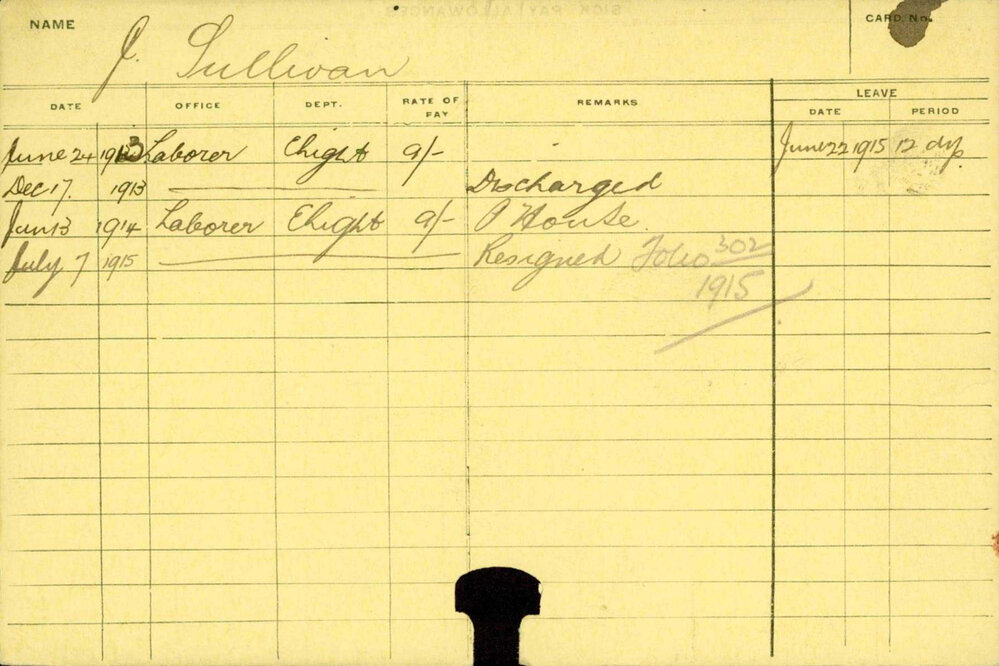 NAME J. Sullivan CARD No.
DATE OFFICE DEPT. RATE OF PAY REMARKS LEAVE
DATE PERIOD
June 24 1913 Laborer Elight 9/- June 22 1915 12 dys.
Dec 17. 1913 Discharged
Jun 13 1914 Laborer Elight 9/- P House.
July 7 1915 Resigned Folio 302
1915